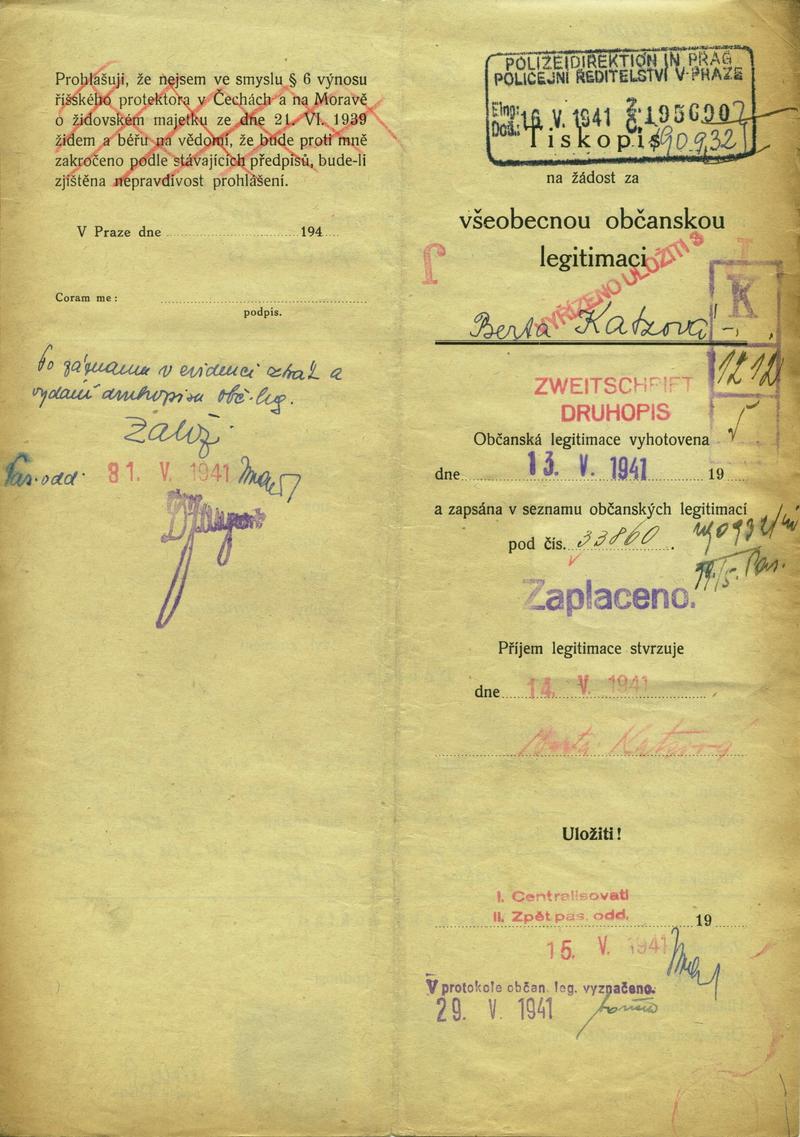 Prohlašuji, že nejsem ve smyslu § 6 výnosu
říšského protektora v Čechách a na Moravě
o židovském majetku ze dne 21. VI. 1939
židem a béřu na vědomí, že bude proti mně
zakročeno podle stávajících předpisů, bude-li
zjištěna nepravdivost prohlášení.
V Praze dne 194
Coram me:
podpis.
Po záznamu v evidenci ztrát a
vydání druhopisu obč. leg.
Založ.
Pas. odd.
31. V. 1941
POLIZEIDIREKTION IN PRAG
POLICEJNÍ ŘEDITELSTVÍ V PRAZE
Eing:
Došl:
V. 1941
Tiskopis
90.932
na žádost za
všeobecnou občanskou
legitimaci
VYŘÍZENO ULOŽITI
K
Berta Katzová
1212
ZWEITSCHRIFT
DRUHOPIS
Občanská legitimace vyhotovena
dne 13. V. 1941 19
a zapsána v seznamu občanských legitimací
pod čís. 33860.
Zaplaceno.
Příjem legitimace stvrzuje
dne 14. V. 1941
Berta Katzová
Uložiti!
I. Centralisovati
II. Zpět pas. odd.
19
15. V. 1941
V protokole občan. leg. vyznačeno.
29. V. 1941